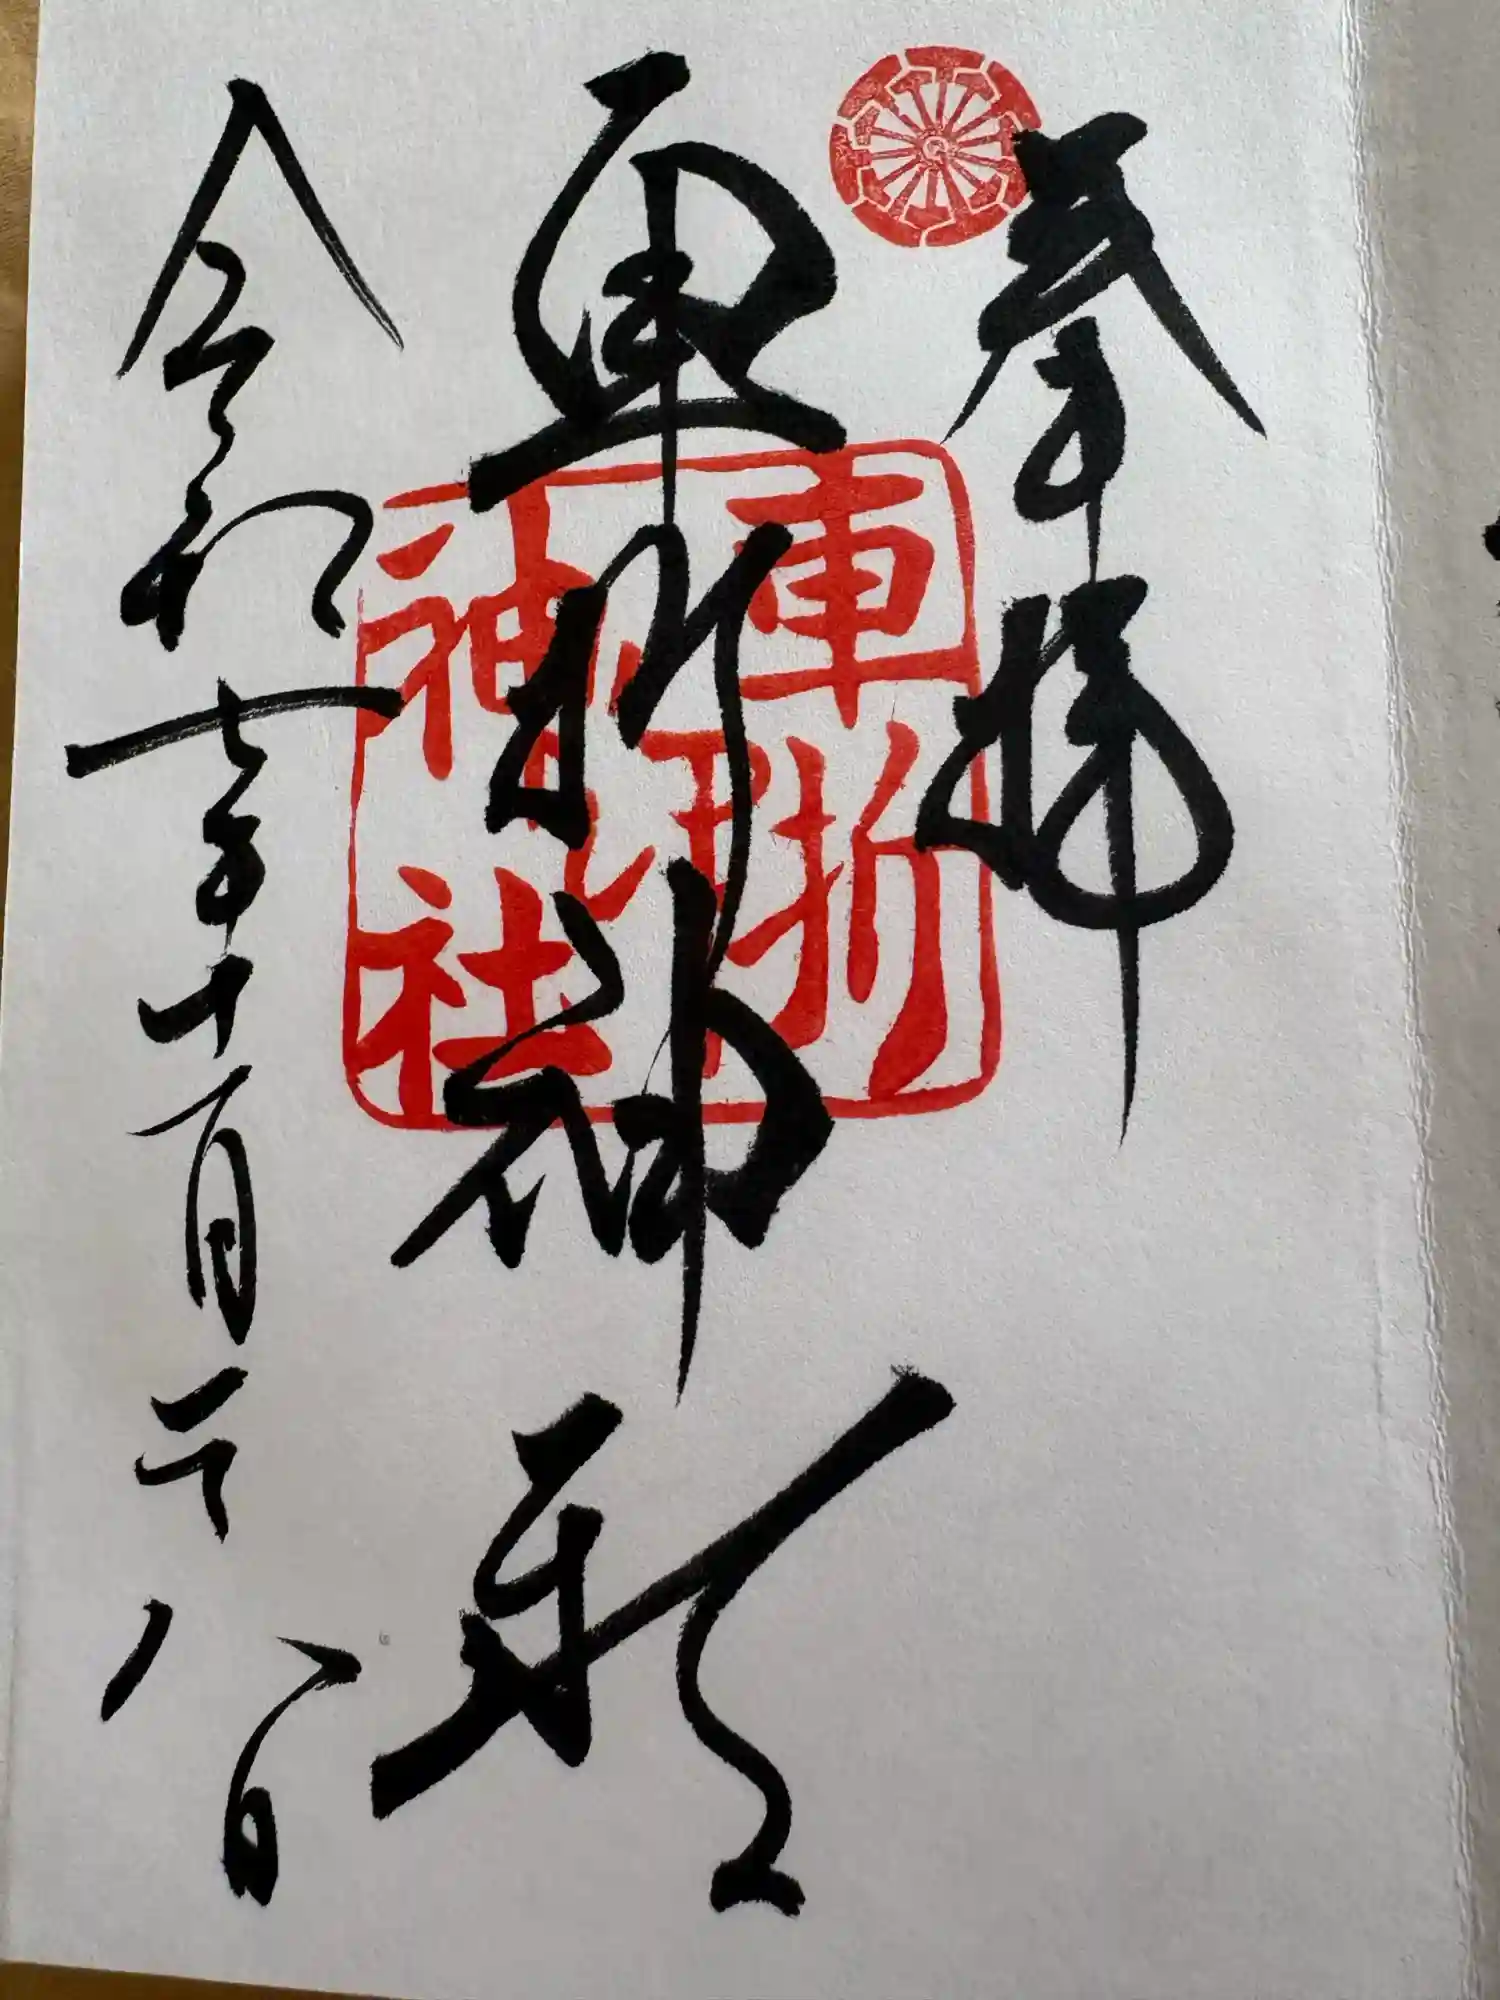 奉拝
車折神社
令和七年十月二十八日
車折
神社